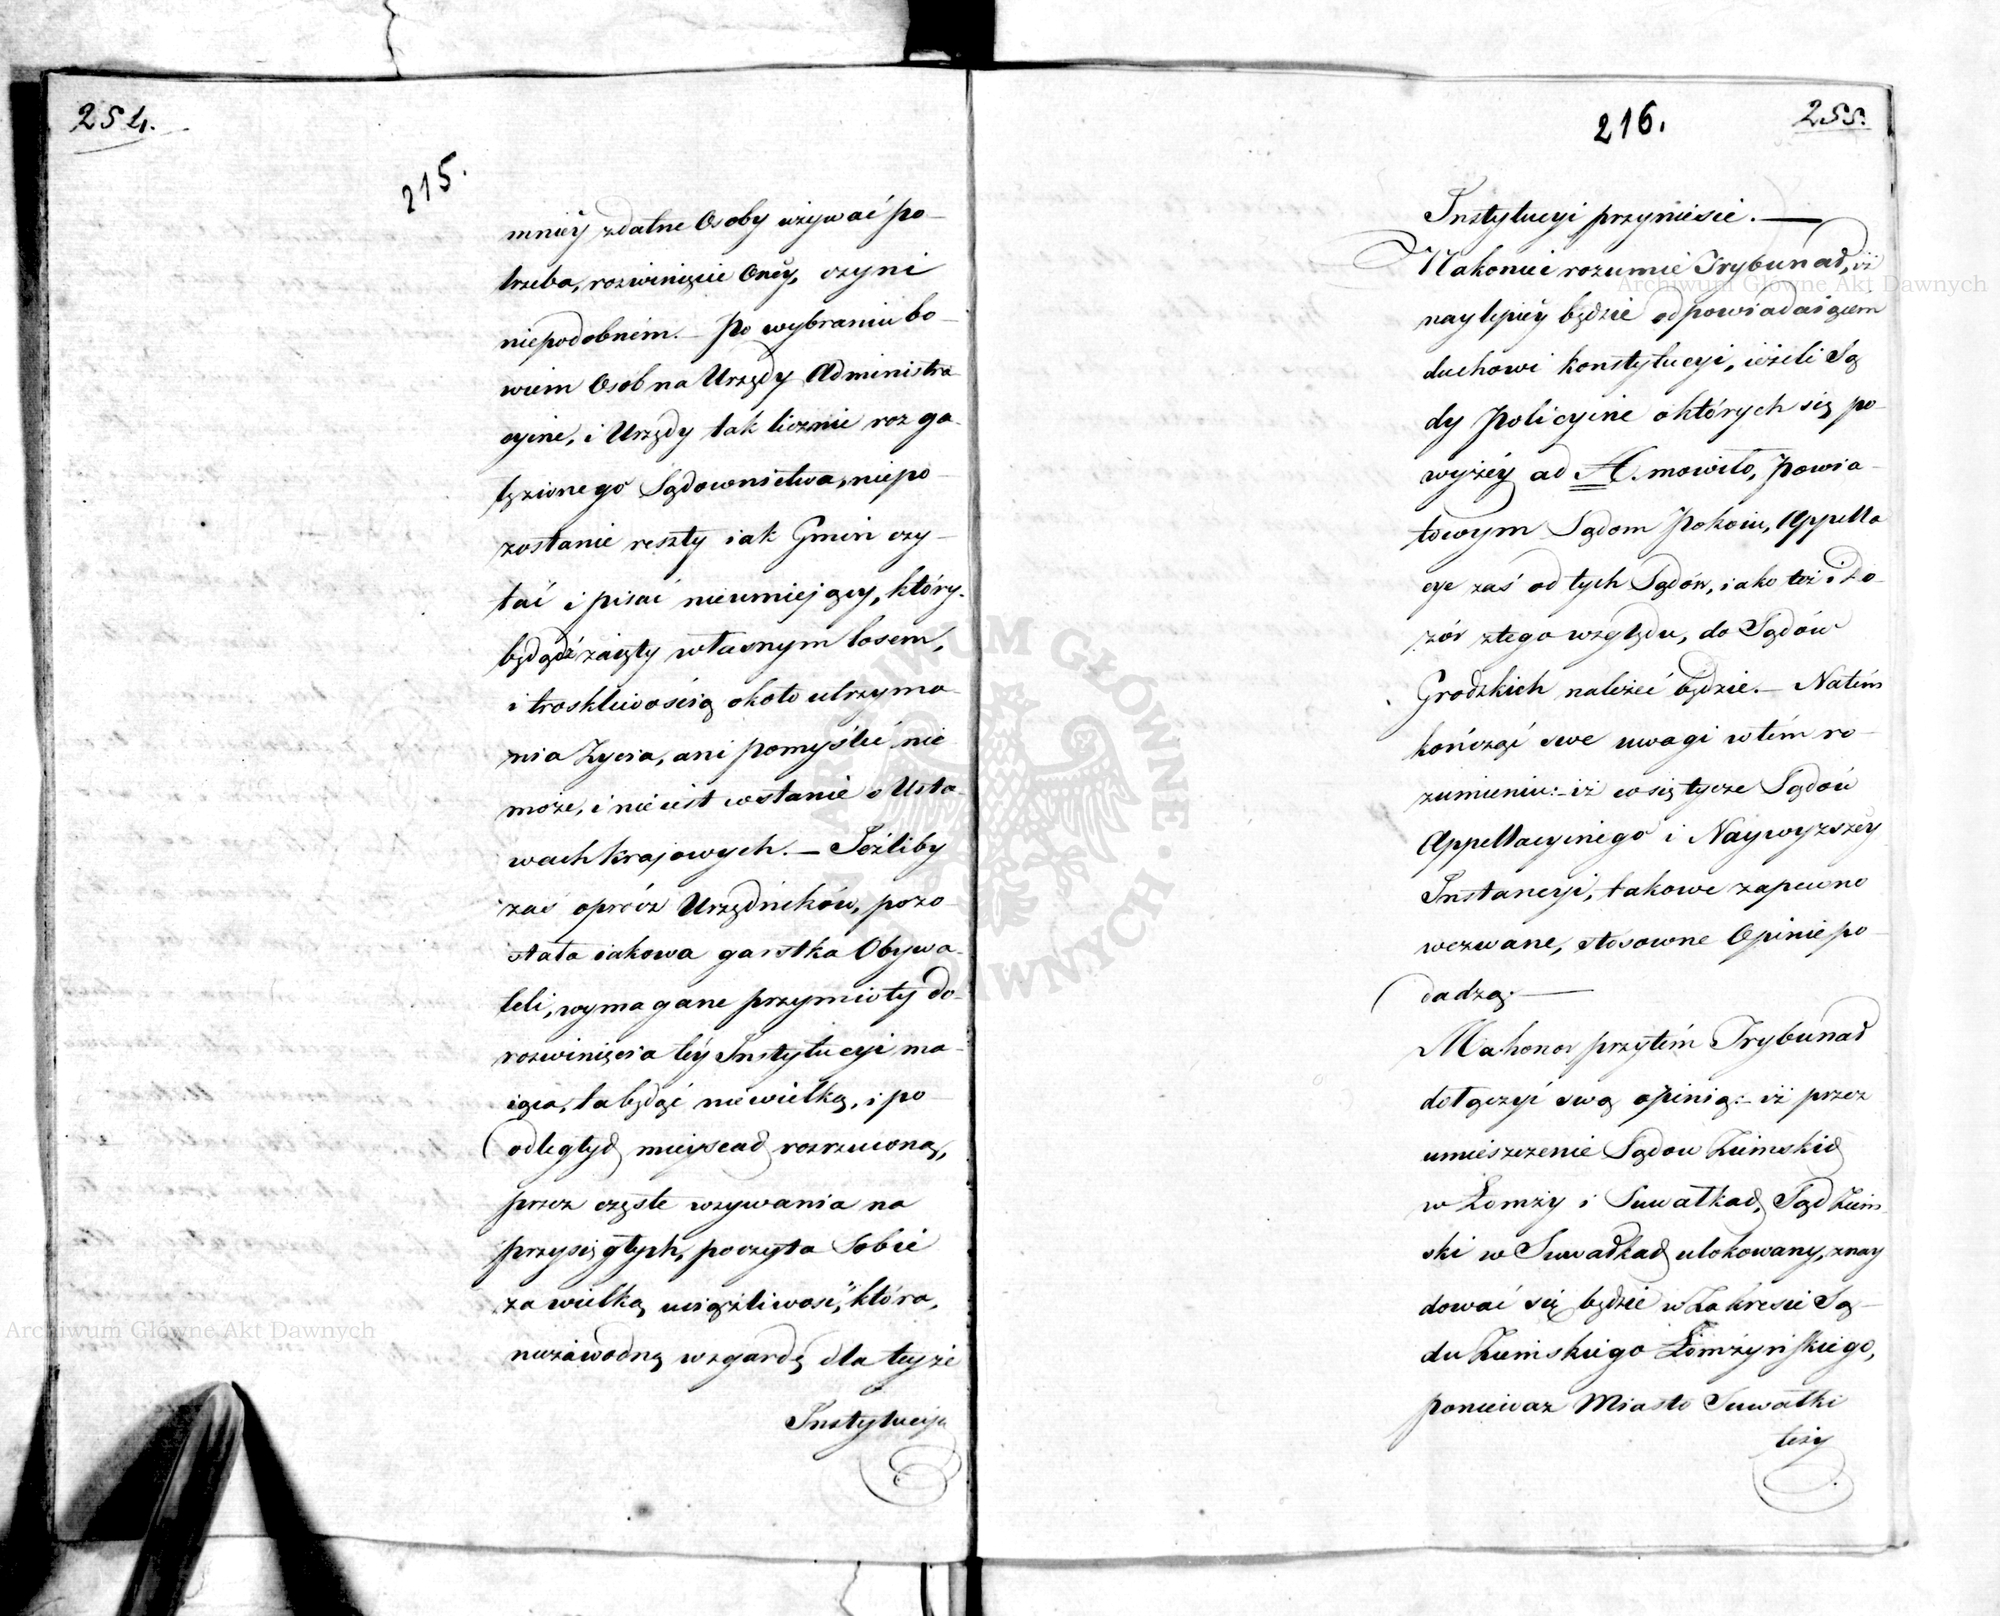 254.
215.
mniéy zdatne Osoby używać po-
trzeba, rozwinięcie Onéy, czyni
niepodobném. – Po wybraniu bo-
wiem Osob na Urzędy Administra-
cyine, i Urzędy tak licznie rozga-
łęzionego Sądownictwa, niepo-
zostanie reszty iak Gmin czy-
tać i pisać nieumiejący, który
będąć zaięty własnym losem,
i troskliwością około utrzyma-
nia Życia, ani pomyśleć nie
może, i nie iest wstanie o Usta-
wach krajowych. – Jeżliby
zaś oprócz Urzędników, pozo-
stała iakowa garstka Obywa-
teli, wymagane przymioty do
rozwinięcia téy Instytucyi ma-
iąca, ta będąć niewielką, i po
odległych mieyscach rozrzuconą,
przez częste wzywania na
przysięgłych, poczyta Sobie
za wielką uciążliwość, która,
niezawodną wzgardę dla teyże
Instytucyi
216.
255.
Instytucyi przyniesie. –
Nakoniec rozumie Trybunał, iż
naylepiéy będzie odpowiadaiącem
duchowi konstytucyi, ieżeli Są-
dy Policyine o których się po-
wyżéy ad A. mowiło, Powia-
towym Sądom Pokoiu, Appella-
cye zaś od tych Sądów, iako też i Do-
zór ztego względu, do Sądów
Grodzkich należeć będzie. – Natém
kończąć swe uwagi wtém ro-
zumieniu: – iż co się tycze Sądów
Appellacyinego i Naywyższéy
Instancyi, takowe zapewne
wezwane, stosowne Opinie po-
dadzą. –
Ma honor przytém Trybunał
dołączyć swą opinią: – iż przez
umieszczenie Sądów Ziemskich
w Łomży i Suwałkach, Sąd Ziem-
ski w Suwałkach ulokowany, znay-
dować się będzie w Zakresie Są-
du Ziemskiego Łomżyńskiego,
ponieważ Miasto Suwałki
leży
Archiwum Główne Akt Dawnych
Archiwum Główne Akt Dawnych
ARCHIWUM GŁÓWNE AKT DAWNYCH